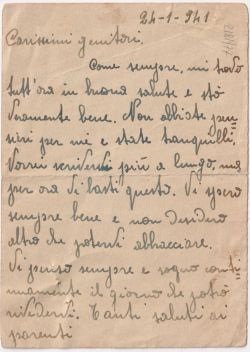 24-1-941
Carissimi genitori.
Come sempre, mi trovo
tutt'ora in buona salute e stò
veramente bene. Non abbiate pen
sieri per me e state tranquilli.
Vorrei scrivervi più a lungo, ma
per ora vi basti questo. Vi spero
sempre bene e non desidero
altro che potervi abbracciare.
Vi penso sempre e sogno conti
nuamente il giorno che potrò
rivedervi. Tanti saluti ai
parenti